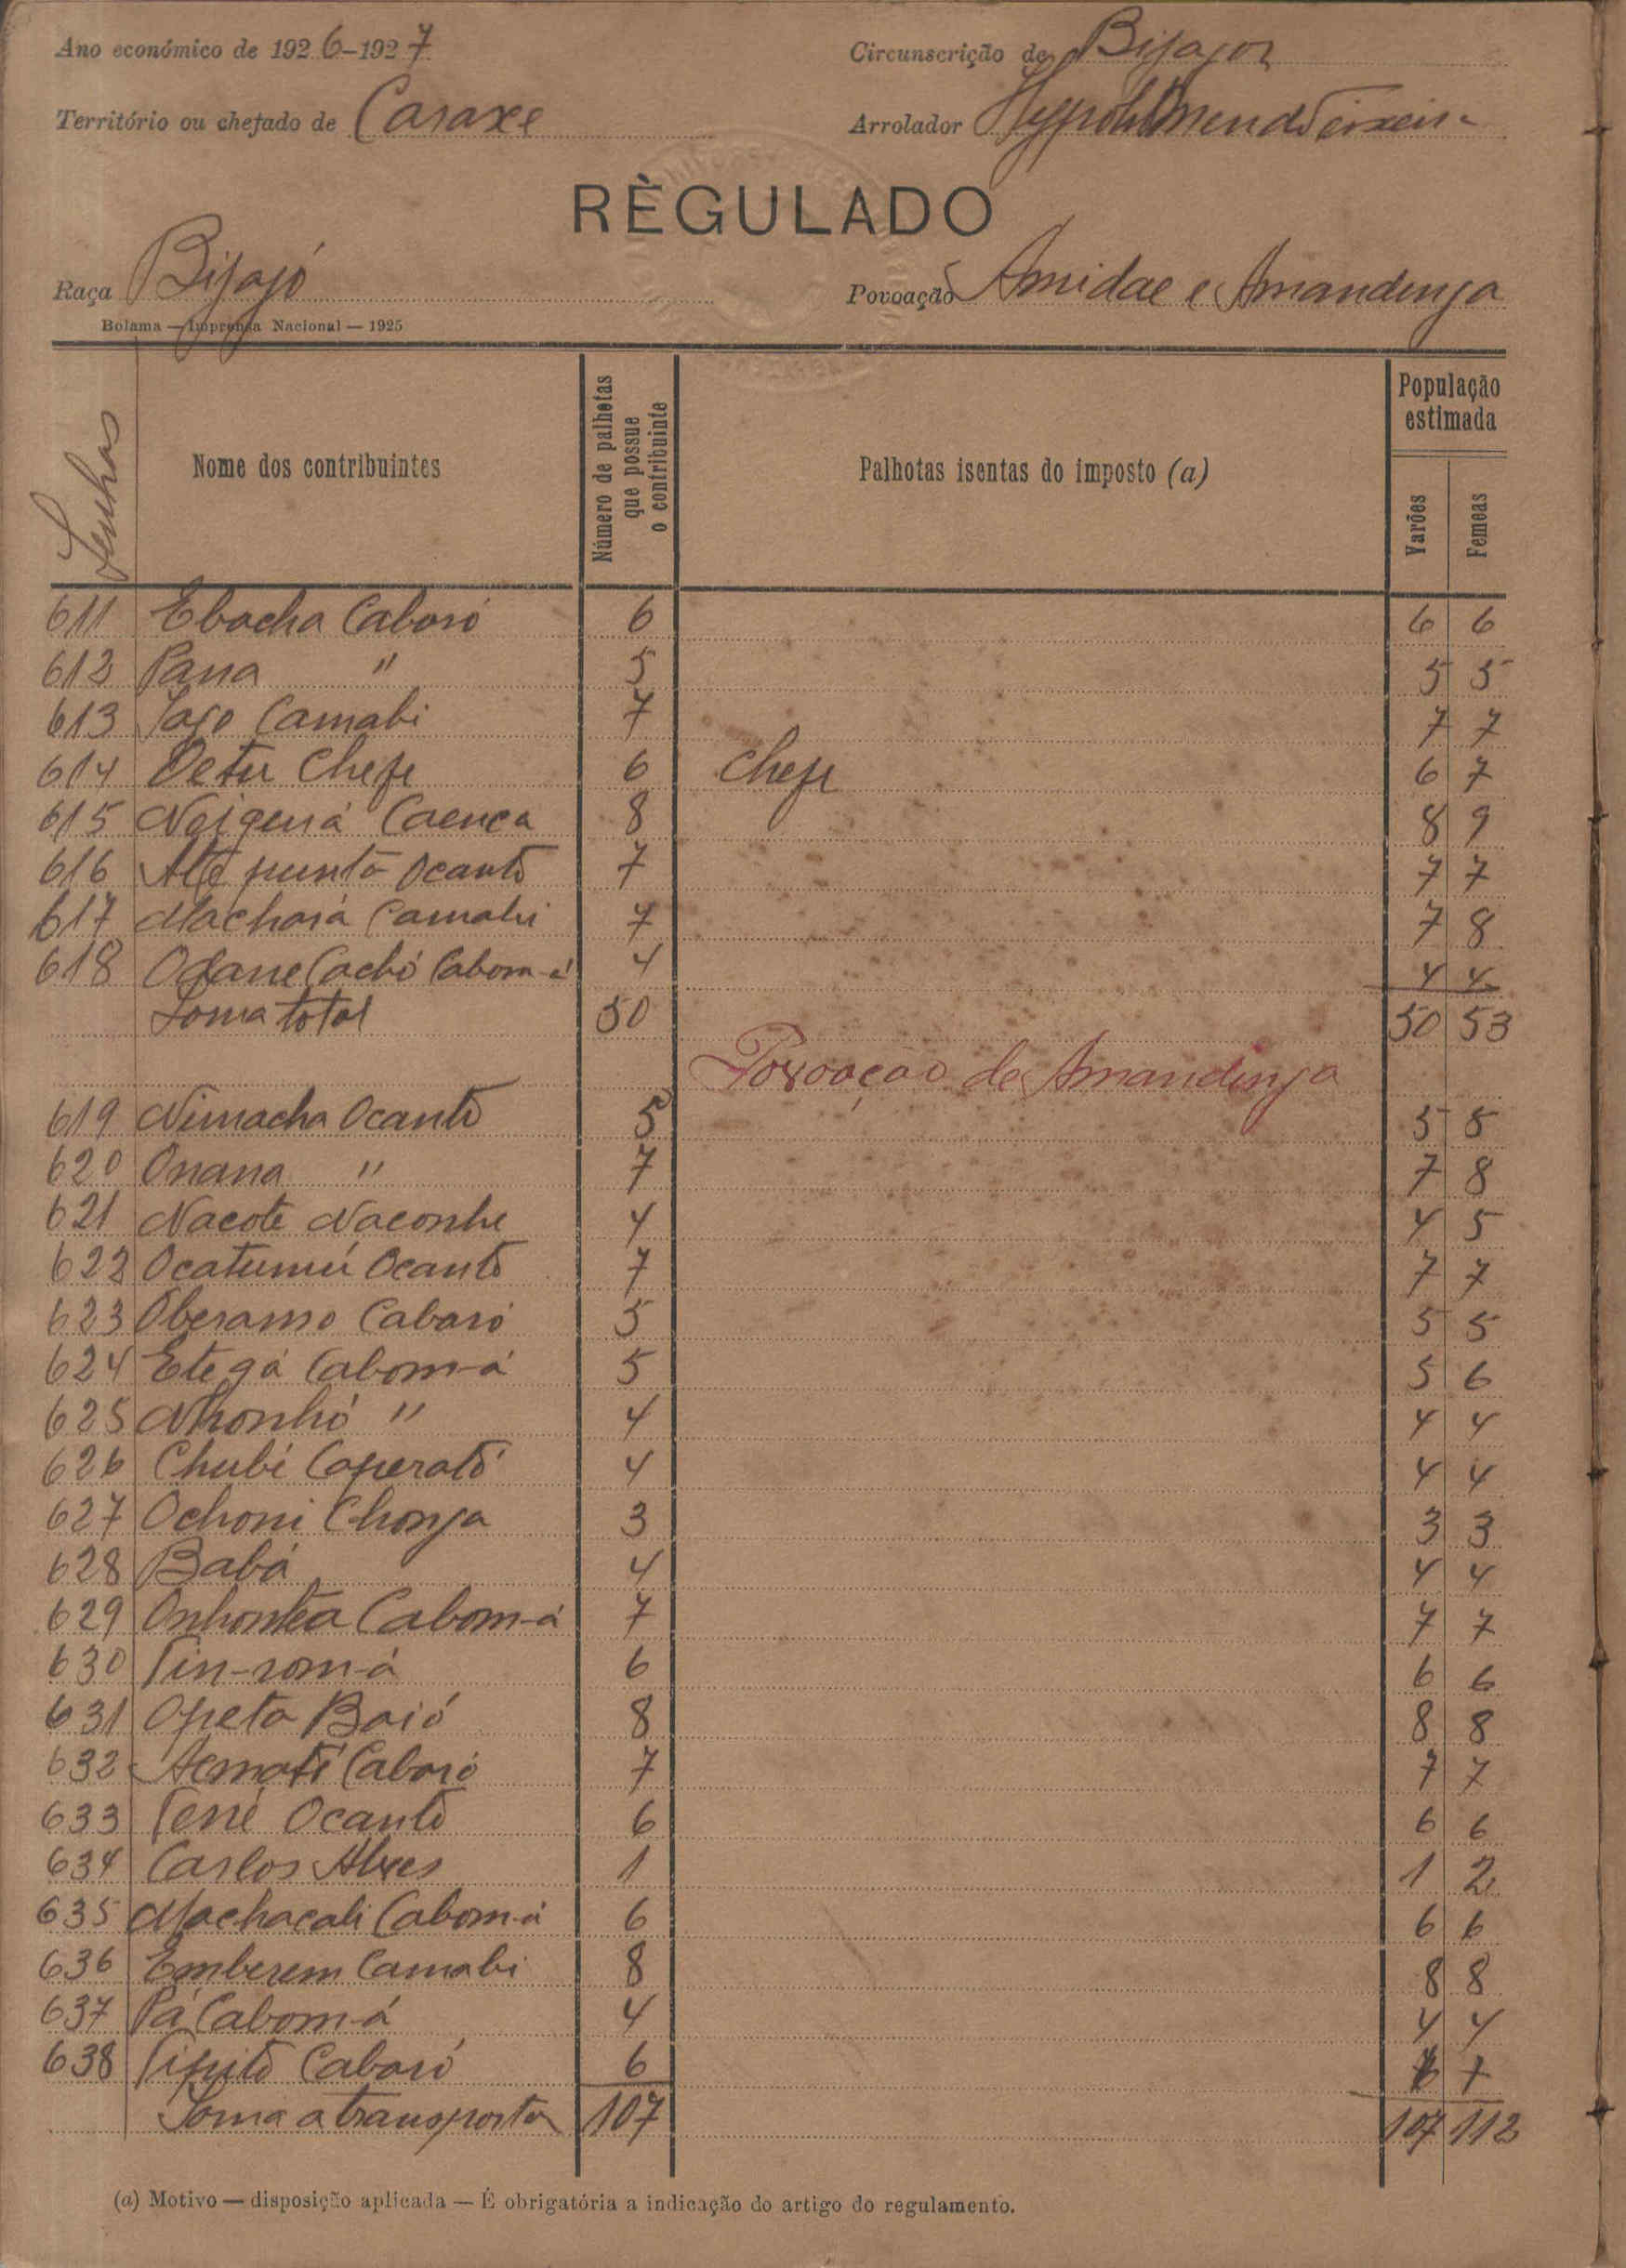 Ano económico de 1926-1927
Circunscrição de Bijagoz
Território ou chefado de Caraxe
Arrolador Teixeira
RÈGULADO
Raça Bijagó
Povoação Amidae e Amandinga
Bolama — Imprensa Nacional — 1925
Senhas
Nome dos contribuintes
Número de palhotas que possue o contribuinte
Palhotas isentas do imposto (a)
População estimada
Varões
Femeas
611 Ebocha Caboró 6 6 6
612 Pana " 5 5 5
613 Camabi 7 7 7
614 Detu Chefe 6 chefe 6 7
615 Caenca 8 8 9
616 Até puntó Ocantó 7 7 7
617 Machorá Camabi 7 7 8
618 Odane Cachó Cabom-á 4 4 4
Soma total 50 50 53
Povoação de Amandinga
619 Nimacha Ocantó 5 5 5
620 Onana " 7 7 8
621 Nacote Naconhe 4 4 5
622 Ocatumú Ocantó 7 7 7
623 Oberamo Caboró 5 5 5
624 Etegá Cabom-á 5 5 6
625 Nhonhó " 4 4 4
626 Chubi Caperató 4 4 4
627 Ochoni Chonga 3 3 3
628 Babá 4 4 4
629 Onhontea Cabom-á 7 7 7
630 Tin-rom-á 6 6 6
631 Opeta Baió 8 8 8
632 Caboró 7 7 7
633 Tené Ocantó 6 6 6
634 Carlos Alves 1 1 2
635 Machacali Cabom-á 6 6 6
636 Emberem Camabi 8 8 8
637 Pá Cabom-á 4 4 4
638 Caboró 6 6 7
Soma a transportar 107 107 112
(a) Motivo — disposição aplicada — É obrigatória a indicação do artigo do regulamento.